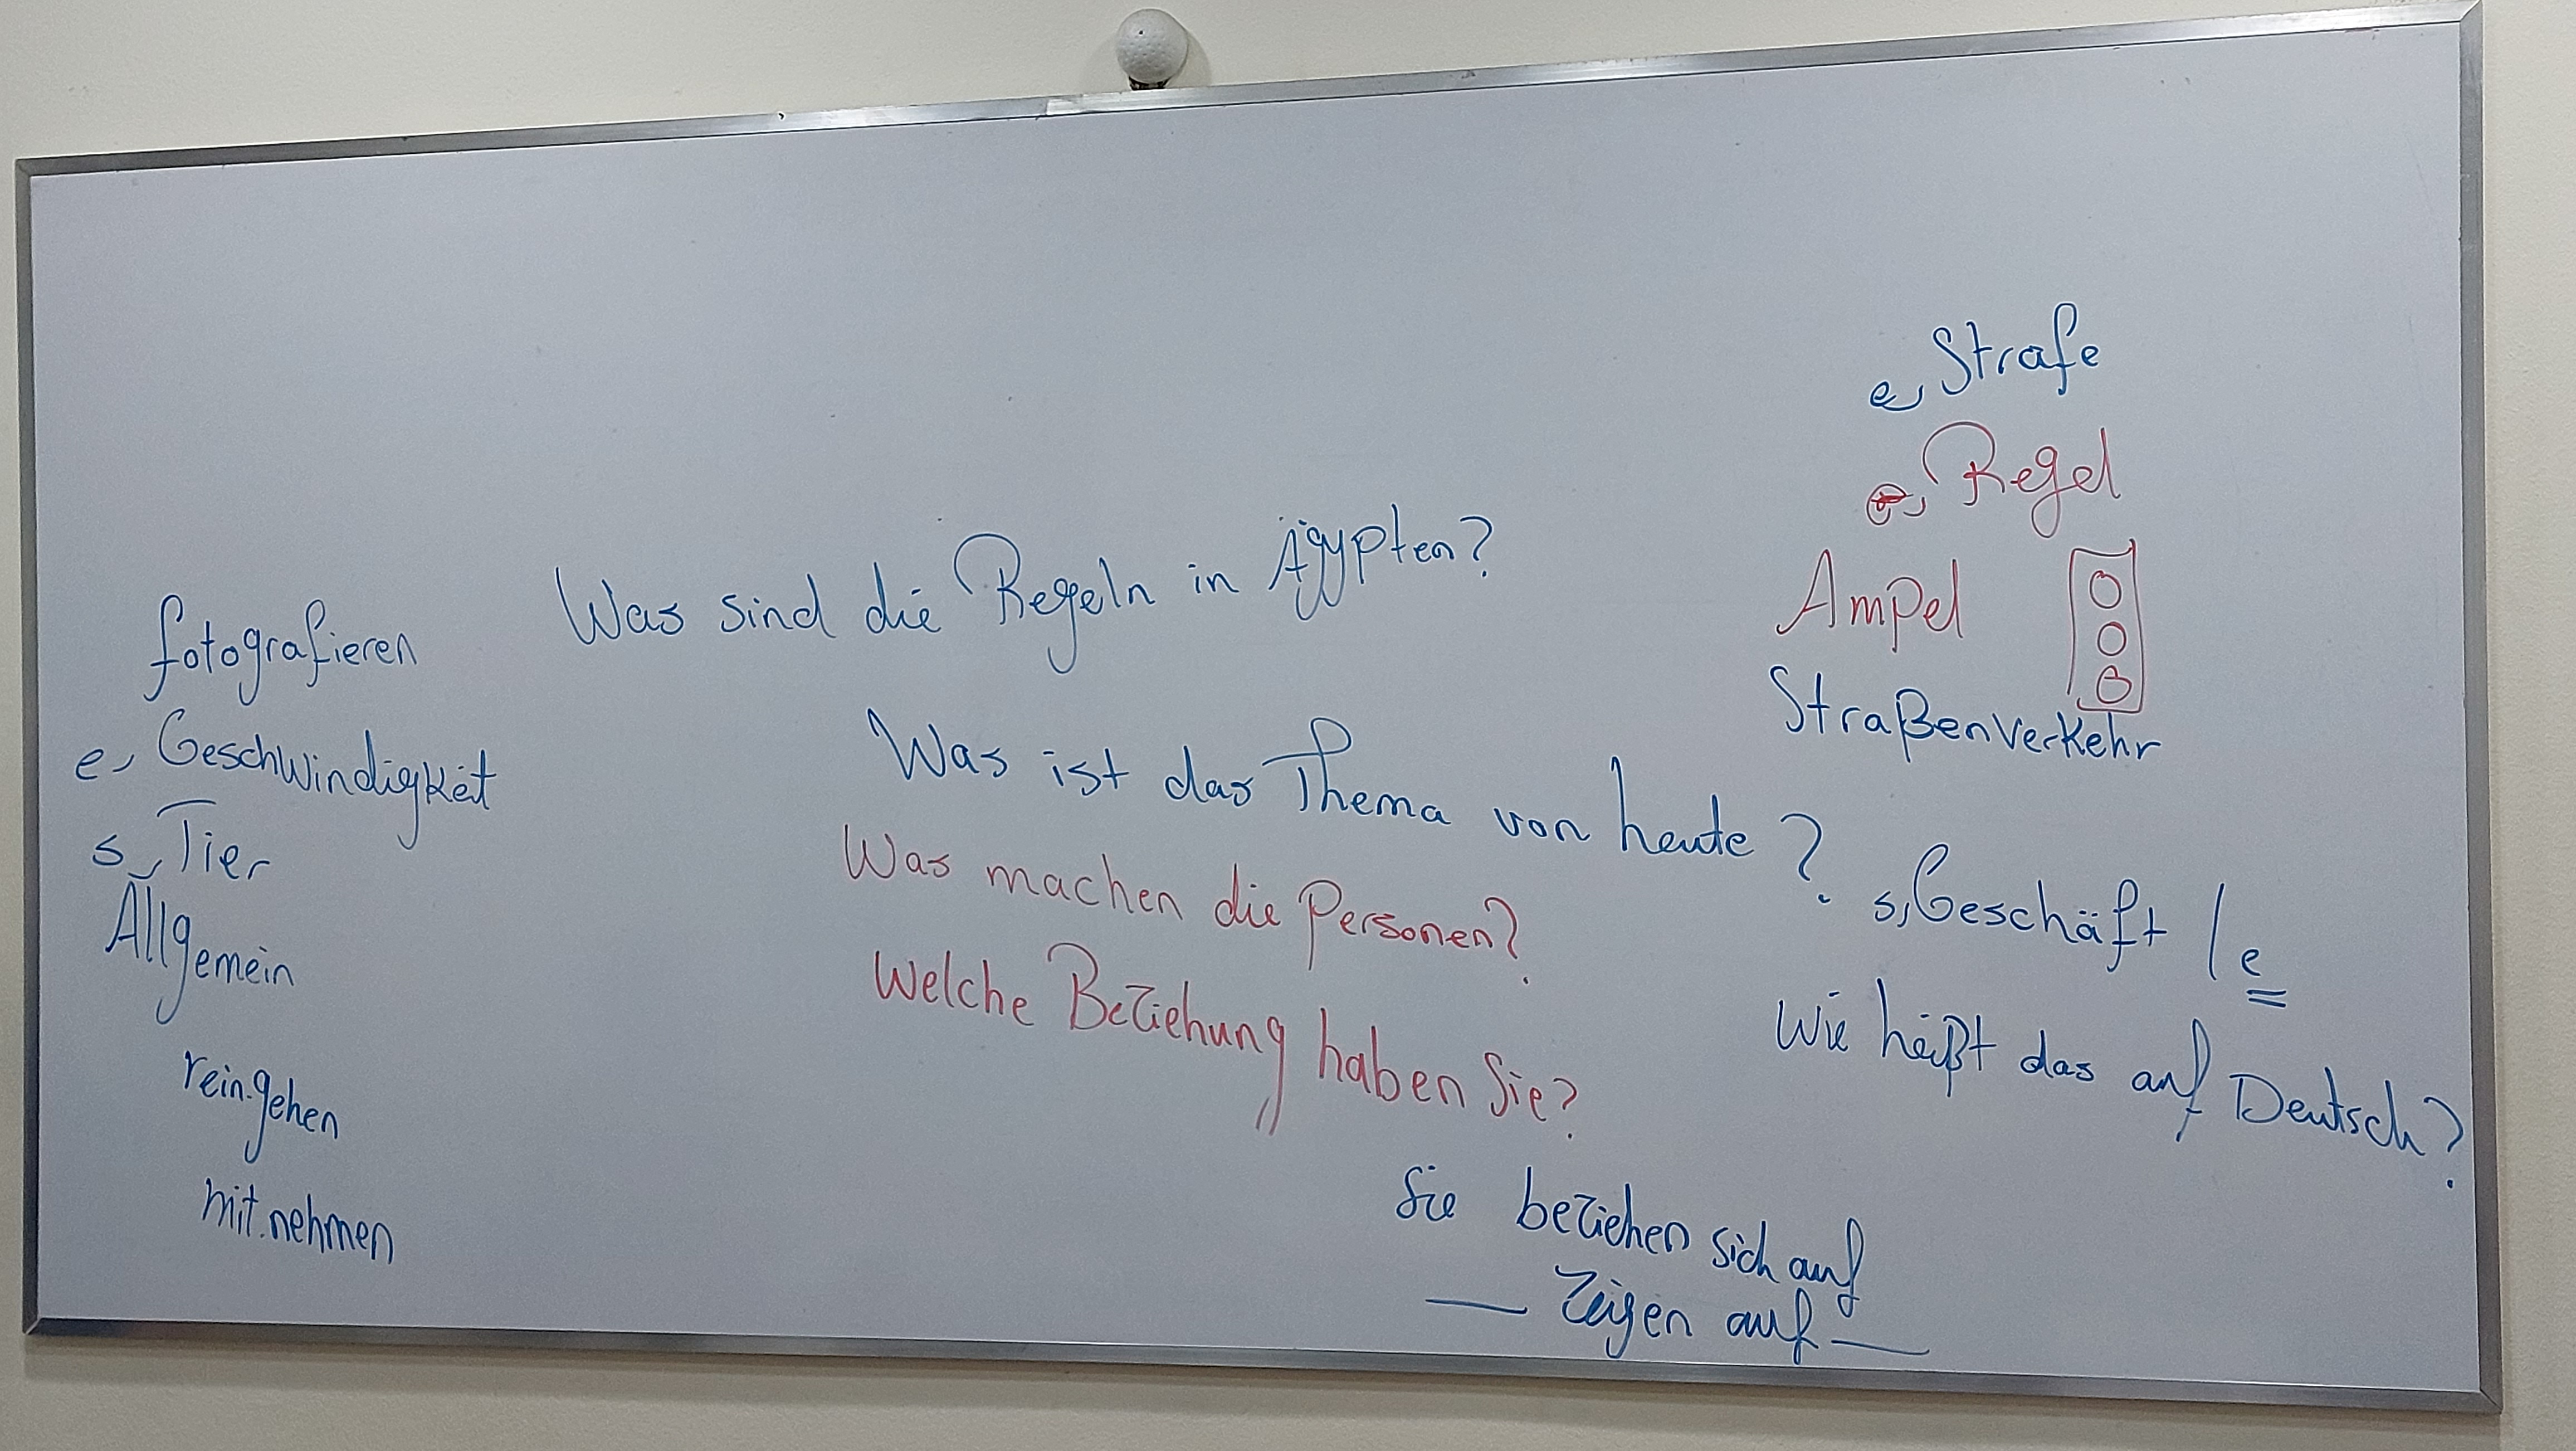 fotografieren
e, Geschwindigkeit
s, Tier
Allgemein
rein.gehen
mit.nehmen
Was sind die Regeln in Ägypten?
Was ist das Thema von heute?
Was machen die Personen?
Welche Beziehung haben Sie?
Sie beziehen sich auf
— Zeigen auf —
e, Strafe
e, Regel
Ampel
Straßenverkehr
s, Geschäft / e
Wie heißt das auf Deutsch?